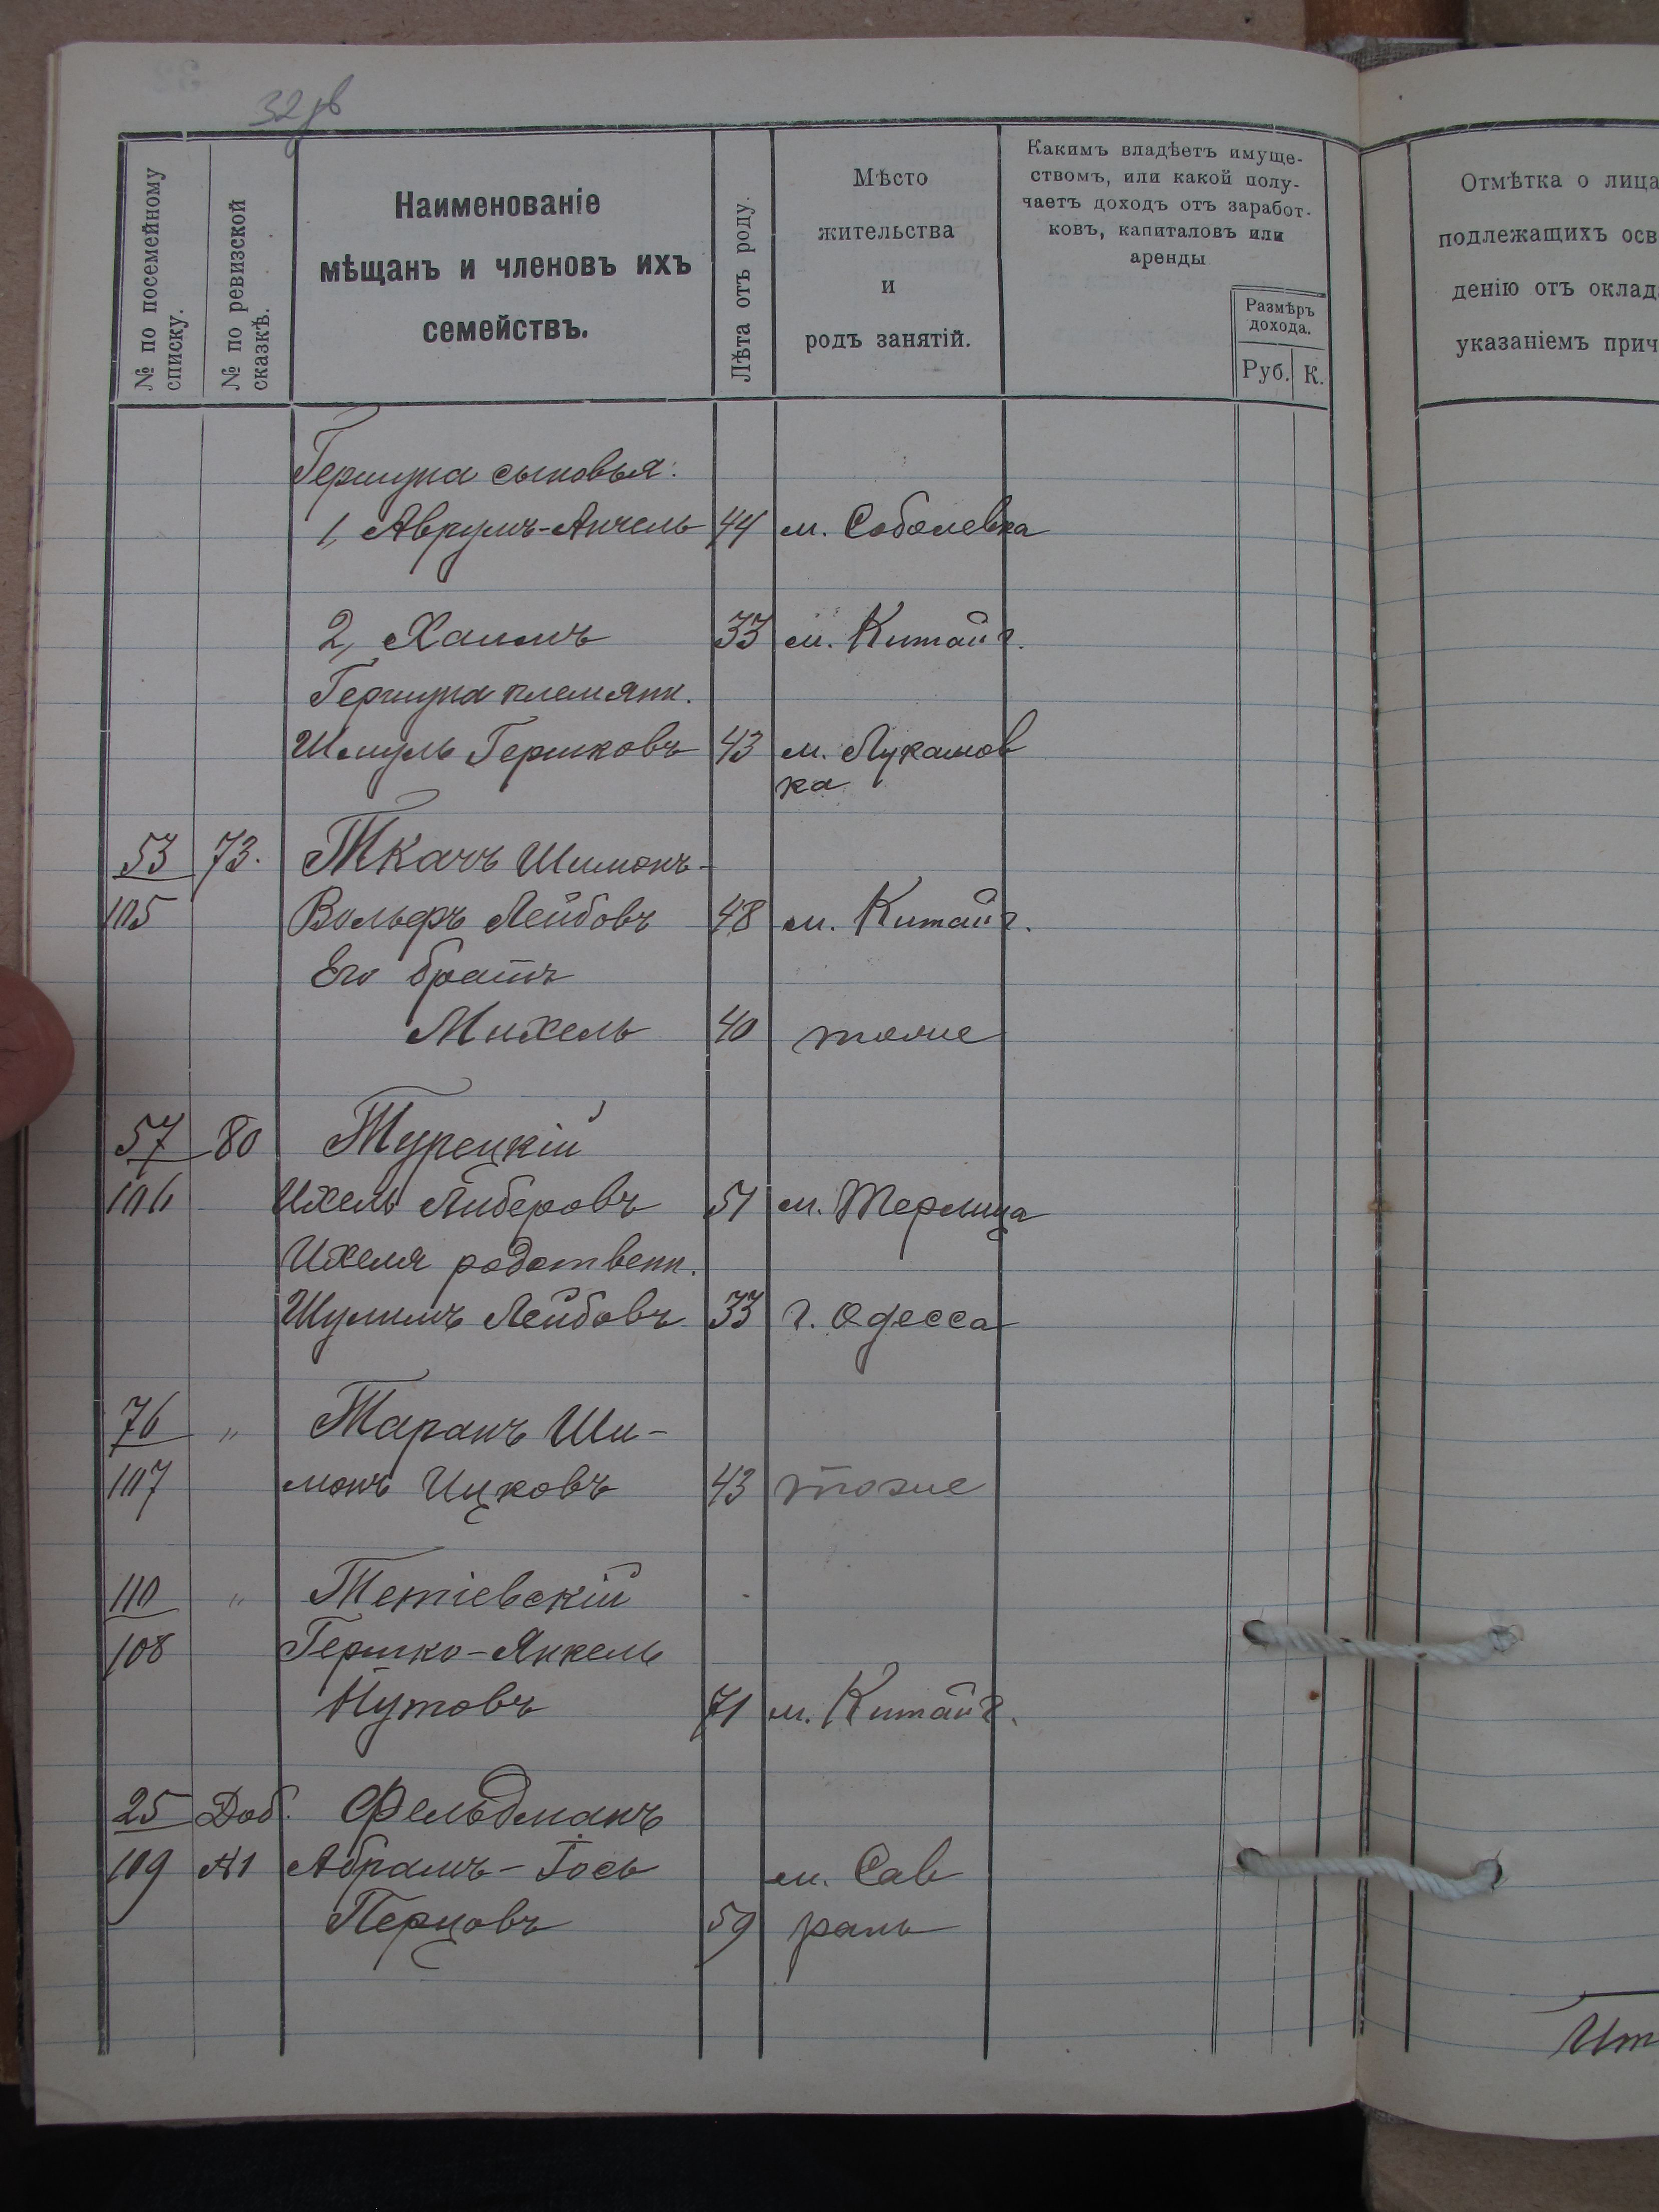 32 об
№ по посемейному
списку.
№ по ревизской
сказкѣ.
Наименованіе
мѣщанъ и членовъ ихъ
семействъ.
Лѣта отъ роду.
Мѣсто
жительства
и
родъ занятій.
Какимъ владѣетъ имуще-
ствомъ, или какой полу-
чаетъ доходъ отъ заработ-
ковъ, капиталовъ или
аренды
Размѣръ
дохода.
Руб. К.
Отмѣтка о лица
подлежащихъ осв
денію отъ оклад
указаніемъ прич
Гершуна сыновья:
1, Аврумъ-Анчель 44 м. Соболевка
2, Хаимъ 33 м. Китайг.
Гершуна племянн.
Шмуль Гершковъ 43 м. Лукашов
ка
53 73. Ткачъ Шимонъ-
105 Вольфъ Лейбовъ 48 м. Китайг.
Его братъ
Михель 40 тоже
57 80 Турецкій
106 Ихель Либеровъ 51 м. Терлица
Ихеля родственн.
Шулимъ Лейбовъ 33 г. Одесса
76 " Таранъ Ши-
107 монъ Ицковъ 43 тоже
110 " Тетіевскій
108 Гершко-Янкель
Нутовъ 71 м. Китайг.
25 Доб. Фельдманъ
109 №1 Абрамъ-Іось м. Сав
Перцовъ 59 рань
Ит